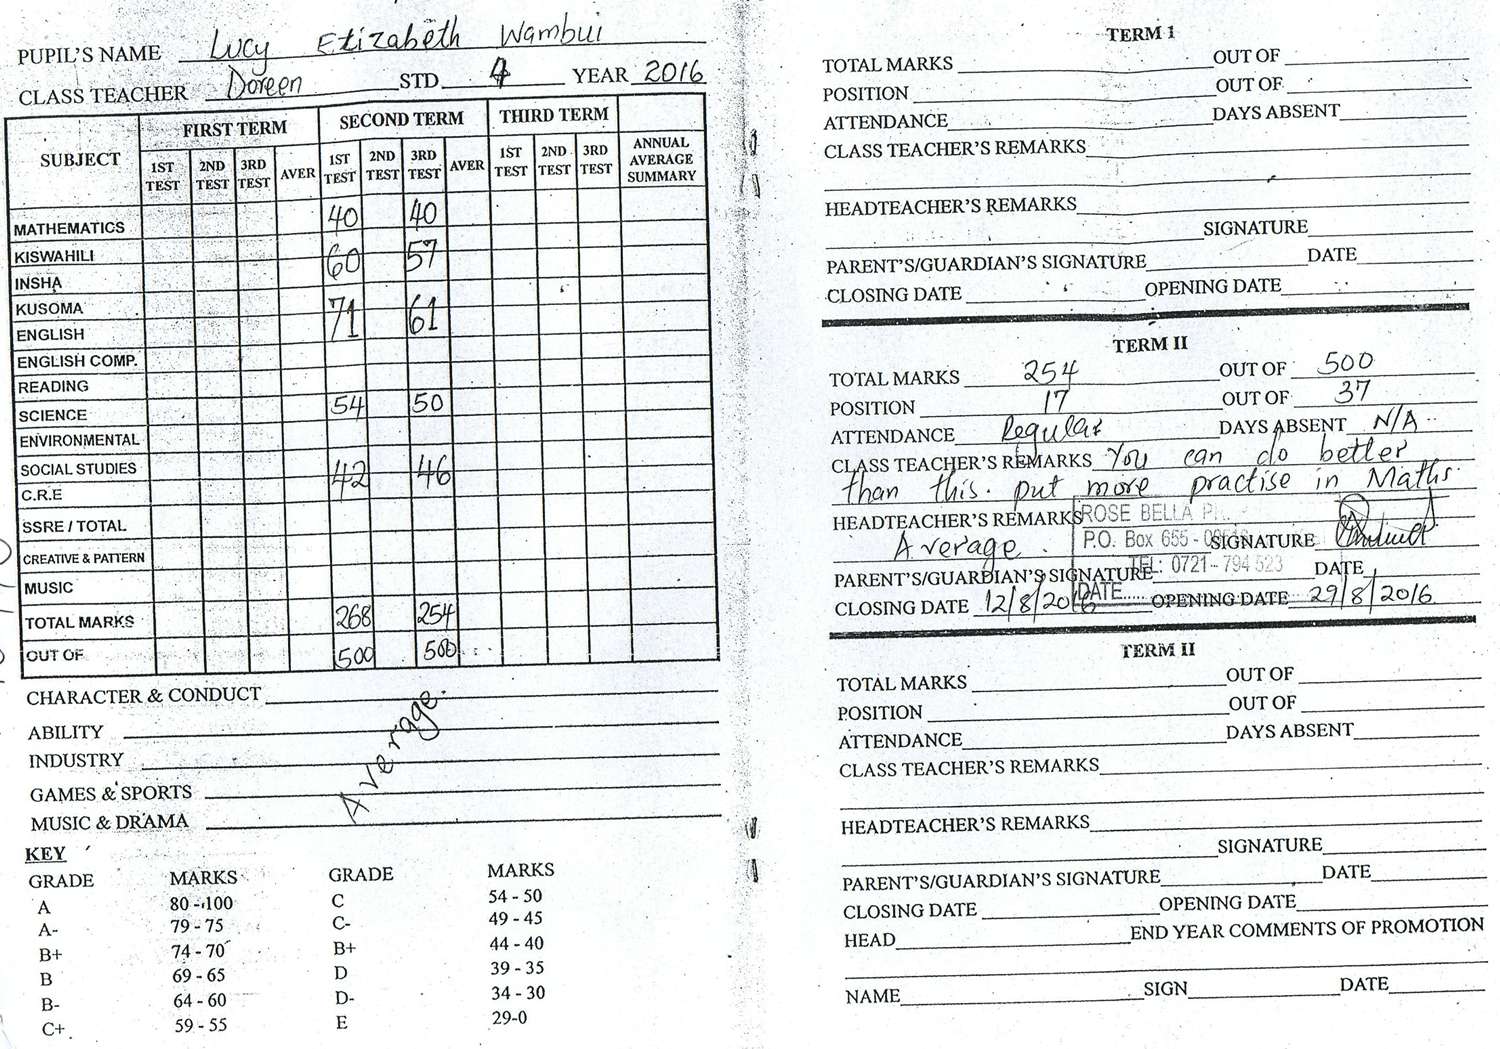 PUPIL'S NAME Lucy Elizabeth Wambui
CLASS TEACHER Doreen STD 4 YEAR 2016
SUBJECT FIRST TERM SECOND TERM THIRD TERM
1ST TEST 2ND TEST 3RD TEST AVER 1ST TEST 2ND TEST 3RD TEST AVER 1ST TEST 2ND TEST 3RD TEST ANNUAL AVERAGE SUMMARY
MATHEMATICS 40 40
KISWAHILI 60 57
INSHA
KUSOMA
ENGLISH 71 61
ENGLISH COMP.
READING
SCIENCE 54 50
ENVIRONMENTAL
SOCIAL STUDIES 42 46
C.R.E
SSRE / TOTAL
CREATIVE & PATTERN
MUSIC
TOTAL MARKS 268 254
OUT OF 500 500
CHARACTER & CONDUCT
ABILITY
INDUSTRY
GAMES & SPORTS
MUSIC & DRAMA
Average.
KEY
GRADE MARKS GRADE MARKS
A 80 - 100 C 54 - 50
A- 79 - 75 C- 49 - 45
B+ 74 - 70 B+ 44 - 40
B 69 - 65 D 39 - 35
B- 64 - 60 D- 34 - 30
C+ 59 - 55 E 29-0
TERM 1
TOTAL MARKS OUT OF
POSITION OUT OF
ATTENDANCE DAYS ABSENT
CLASS TEACHER'S REMARKS
HEADTEACHER'S REMARKS
SIGNATURE
PARENT'S/GUARDIAN'S SIGNATURE DATE
CLOSING DATE OPENING DATE
TERM II
TOTAL MARKS 254 OUT OF 500
POSITION 17 OUT OF 37
ATTENDANCE Regular DAYS ABSENT N/A
CLASS TEACHER'S REMARKS You can do better
than this. put more practise in Maths.
HEADTEACHER'S REMARKS ROSE BELLA
Average. P.O. Box 655 - SIGNATURE
TEL: 0721-794 523
PARENT'S/GUARDIAN'S SIGNATURE DATE
DATE.....
CLOSING DATE 12/8/2016 OPENING DATE 29/8/2016
TERM II
TOTAL MARKS OUT OF
POSITION OUT OF
ATTENDANCE DAYS ABSENT
CLASS TEACHER'S REMARKS
HEADTEACHER'S REMARKS
SIGNATURE
PARENT'S/GUARDIAN'S SIGNATURE DATE
CLOSING DATE OPENING DATE
HEAD END YEAR COMMENTS OF PROMOTION
NAME SIGN DATE